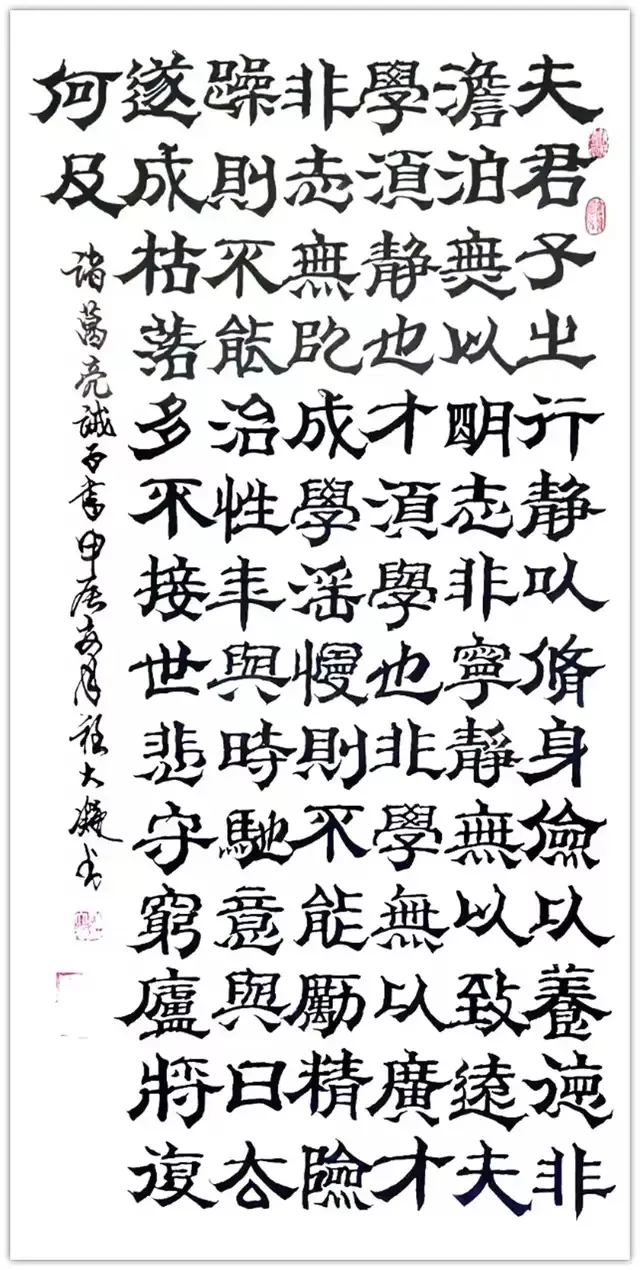 夫君子之行静以脩身儉以養德非
澹泊無以明志非寧靜無以致遠夫
學須静也才須學也非學無以廣才
非志無以成學滛慢則不能勵精險
躁則不能治性年與時馳意與日去
遂成枯落多不接世悲守窮廬將復
何及
諸葛亮誡子書甲辰月大书